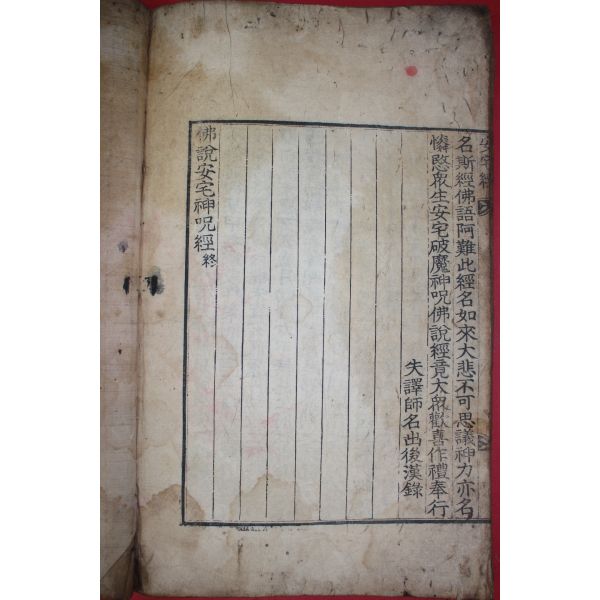 安宅經
名斯經佛語阿難此經名如來大悲不可思議神力亦名
憐愍衆生安宅破魔神呪佛說經竟大衆歡喜作禮奉行
失譯師名出後漢錄
佛說安宅神呪經 終